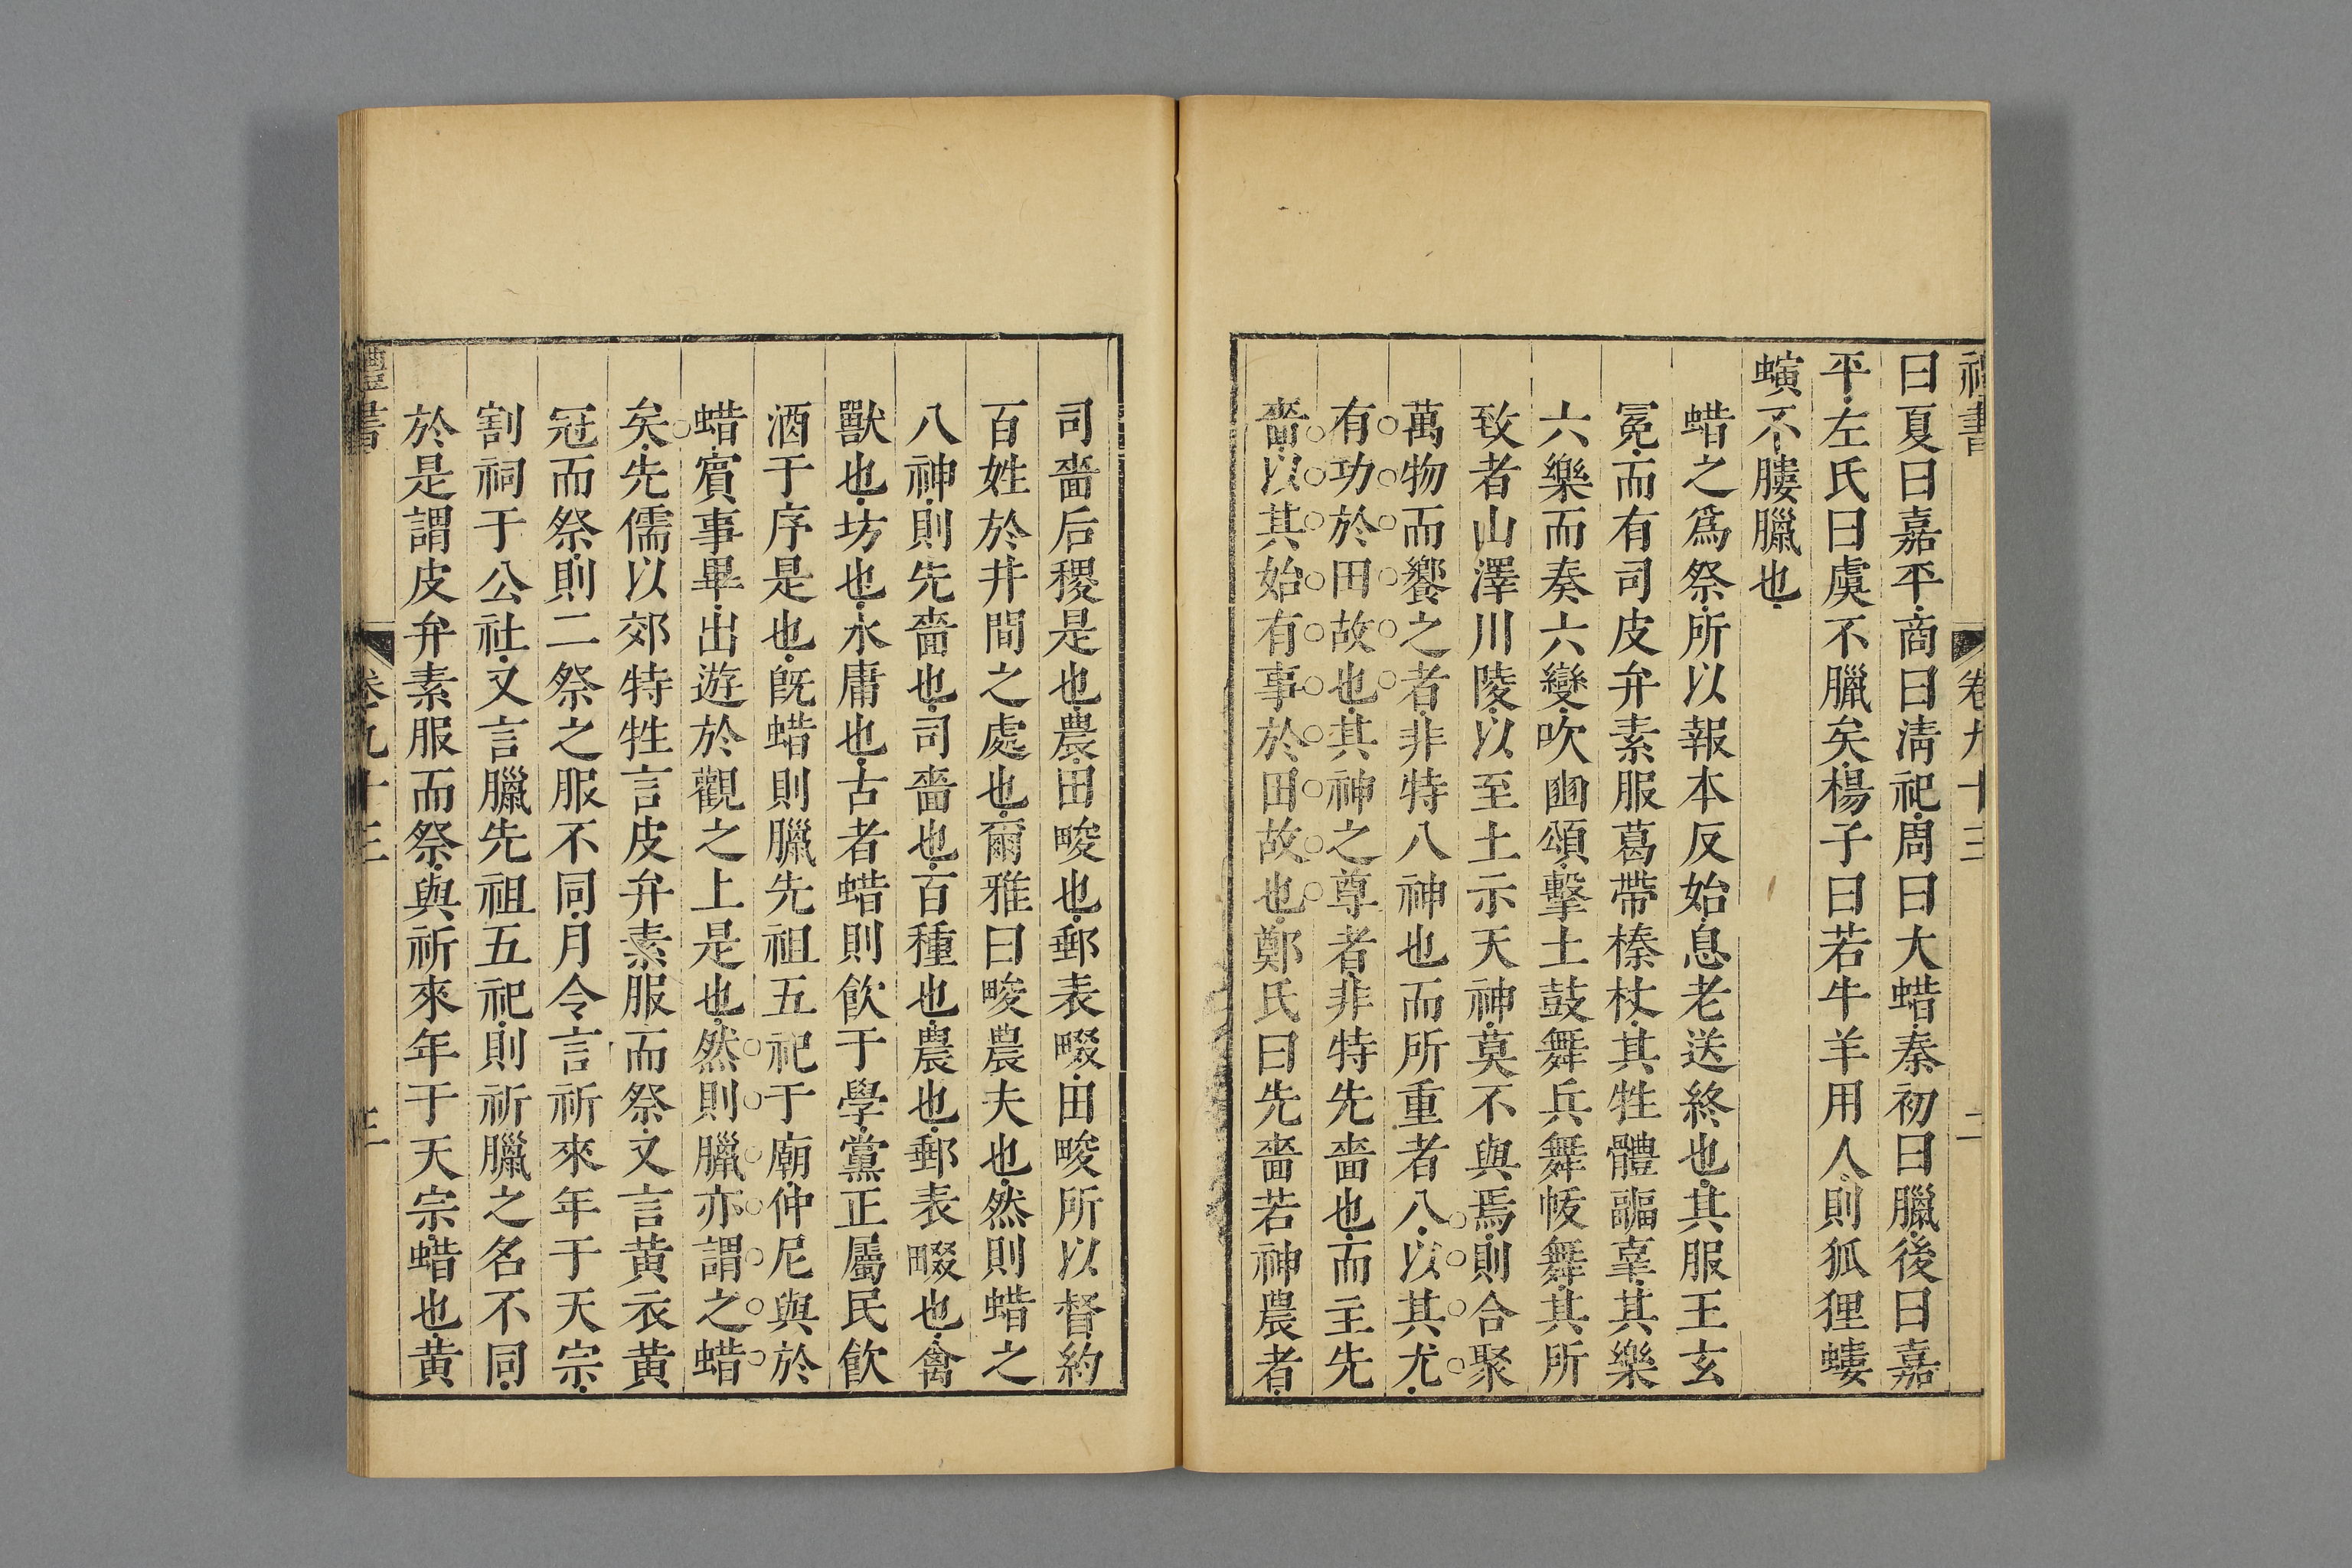 禮書 卷九十三 二
曰夏曰嘉平商曰清祀周曰大蜡秦初曰臘後曰嘉
平左氏曰虞不臘矣楊子曰若牛羊用人則狐狸螻
螾不膢臘也
蜡之為祭所以報本反始息老送終也其服王玄
冕而有司皮弁素服葛帶榛杖其牲體疈辜其樂
六樂而奏六變吹豳頌擊土鼓舞兵舞帗舞其所
致者山澤川陵以至土示天神莫不與焉則合聚
萬物而饗之者非特八神也而所重者八以其尤
有功於田故也其神之尊者非特先嗇也而主先
嗇以其始有事於田故也鄭氏曰先嗇若神農者
司嗇后稷是也農田畯也郵表畷田畯所以督約
百姓於井間之處也爾雅曰畯農夫也然則蜡之
八神則先嗇也司嗇也百種也農也郵表畷也禽
獸也坊也水庸也古者蜡則飲于學黨正屬民飲
酒于序是也旣蜡則臘先祖五祀于廟仲尼與於
蜡賓事畢出遊於觀之上是也然則臘亦謂之蜡
矣先儒以郊特牲言皮弁素服而祭又言黃衣黃
冠而祭則二祭之服不同月令言祈來年于天宗
割祠于公社又言臘先祖五祀則祈臘之名不同
於是謂皮弁素服而祭與祈來年于天宗蜡也黃
禮書 卷九十三 三